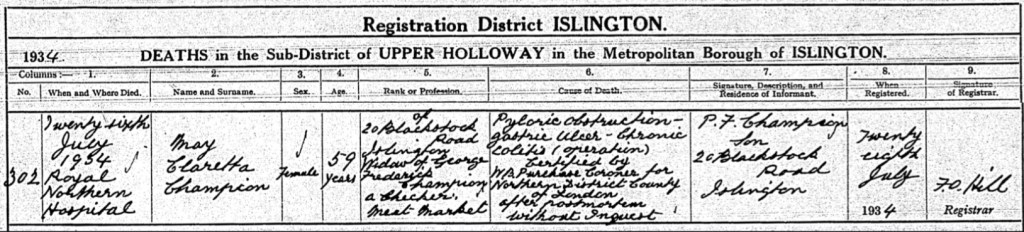 Registration District ISLINGTON.
1934. DEATHS in the Sub-District of UPPER HOLLOWAY in the Metropolitan Borough of ISLINGTON.
Columns :— 1. 2. 3. 4. 5. 6. 7. 8. 9.
No. When and Where Died. Name and Surname. Sex. Age. Rank or Profession. Cause of Death. Signature, Description, and Residence of Informant. When Registered. Signature of Registrar.
302
Twenty sixth
July
1934
Royal
Northern
Hospital
May
Claretta
Champion
Female
59
years
of
20 Blackstock
Road
Islington
Widow of George
Frederick
Champion
a Checker.
Meat Market
Pyloric Obstruction –
gastric Ulcer – Chronic
Colitis (operation)
Certified by
W.B. Purchase Coroner for
Northern District County
of London
after postmortem
without Inquest
P. F. Champion
Son
20 Blackstock
Road
Islington
Twenty
eighth
July
1934
F.O. Hill
Registrar